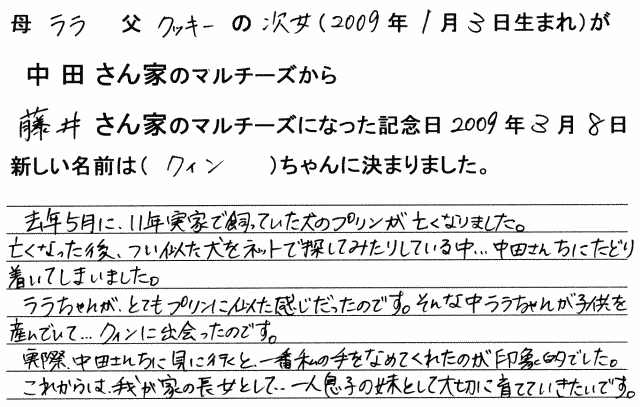 母 ララ 父 クッキー の 次女(2009年1月3日生まれ)が
中田さん家のマルチーズから
藤井さん家のマルチーズになった記念日2009年3月8日
新しい名前は( クィン )ちゃんに決まりました。
去年5月に、11年実家で飼っていた犬のプリンが亡くなりました。
亡くなった後、つい似た犬をネットで探してみたりしている中…中田さんちにたどり
着いてしまいました。
ララちゃんが、とてもプリンに似た感じだったのです。そんな中ララちゃんが子供を
産んでいて…クィンに出会ったのです。
実際、中田さんちに見に行くと、一番私の手をなめてくれたのが印象的でした。
これからは、我が家の長女として、一人息子の妹として大切に育てていきたいです。